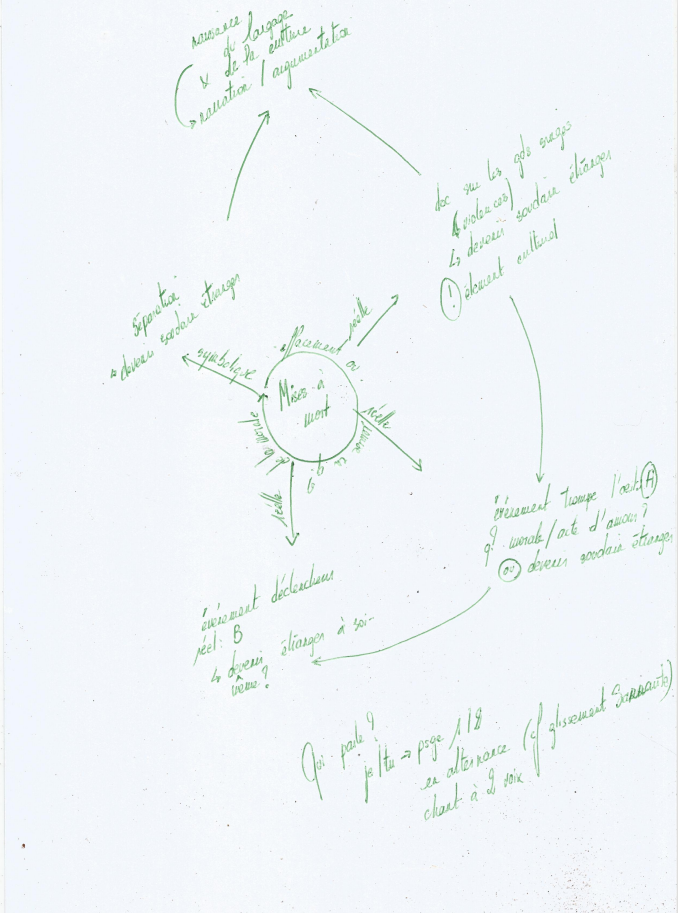 naissance
du langage
& de la culture
→ narration / argumentation
doc sur les gds singes
(violences)
↳ devenir soudain étranger
! élément culturel
Séparation
devenir soudain étranger
symbolique
effacement ou
réelle
Mises à
mort
réelle
de la morale
réelle
événement trompe l'oeil : A
q? morale / acte d'amour ?
ou devenir soudain étranger
événement déclencheur
réel : B
↳ devenir étranger à soi-
même ?
Qui parle ?
je / tu → page 1 / 2
en alternance (cf glissement Sarraute)
chant à 2 voix